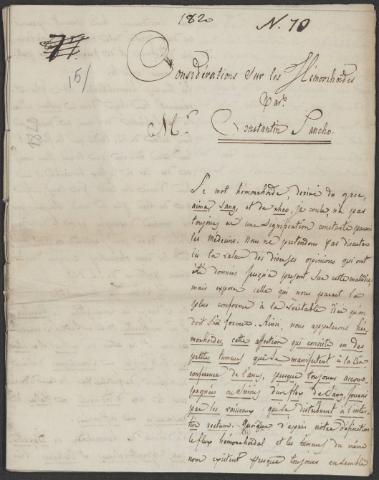 1820
N. 70
77.
151
Considérations sur les Hémorrhoïdes
Par
Mr. Constantin Sancho.
Le mot hémorrhoïde, dérivé du grec,
aima, sang, et de rheo, je coule, n'a pas
toujours eu une signification constante parmi
les médecins. Nous ne prétendons pas discuter
ici la valeur des diverses opinions qui ont
été données jusqu'à présent sur cette matière,
mais exposer celle qui nous parait la
plus conforme à la véritable idée qu'on
doit s'en former. Ainsi, nous appelerons hé-
morrhoïdes, cette affection qui consiste en des
petites tumeurs qui se manifestent à la cir-
conférence de l'anus, presque toujours accom-
pagnées ou suivies d'un flux de sang, fourni
par les vaisseaux qui se distribuent à l'intes-
tin rectum. Quoique d'après notre définition
le flux hémorrhoïdal et les tumeurs du même
nom existent presque toujours ensemble